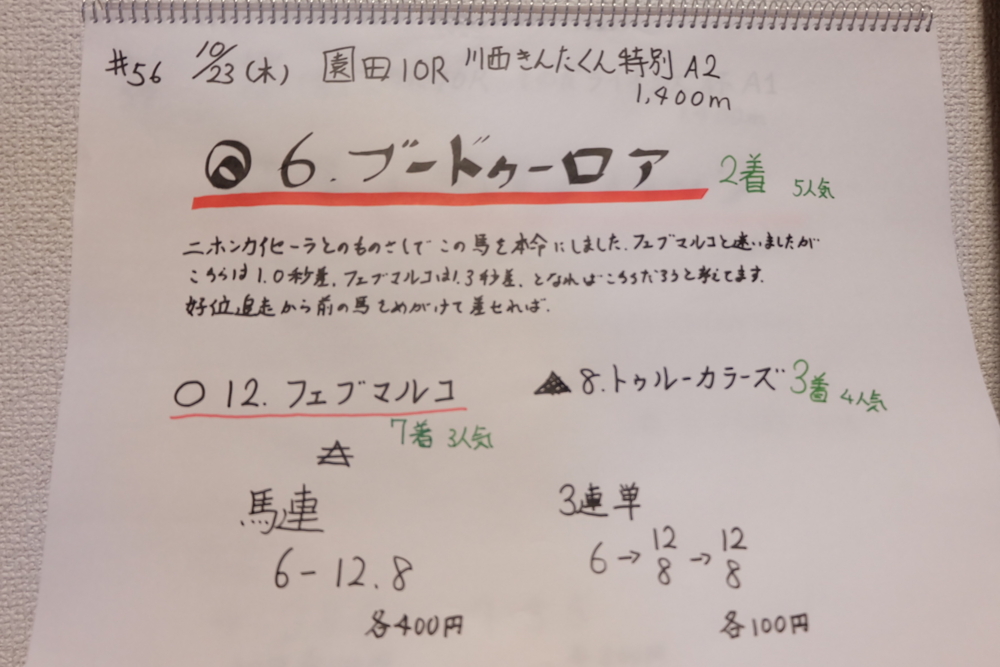 #56 10/23(木) 園田10R 川西きんたくん特別 A2
1,400m
6.ブードゥーロア 2着 5人気
ニホンカイセーラとのものさしでこの馬を本命にしました.フェブマルコと迷いましたが
こちらは1.0秒差.フェブマルコは1.3秒差.となればこちらだろうと考えてます.
好位追走から前の馬をめがけて差せれば.
○ 12.フェブマルコ
7着 3人気
▲ 8.トゥルーカラーズ 3着 4人気
馬連
6-12.8
各400円
3連単
6→12 8→12 8
各100円